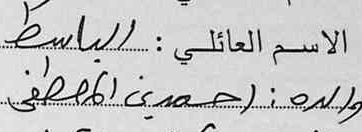 الاسم العائلي : الباسط
والده : احمد بن المصطفى